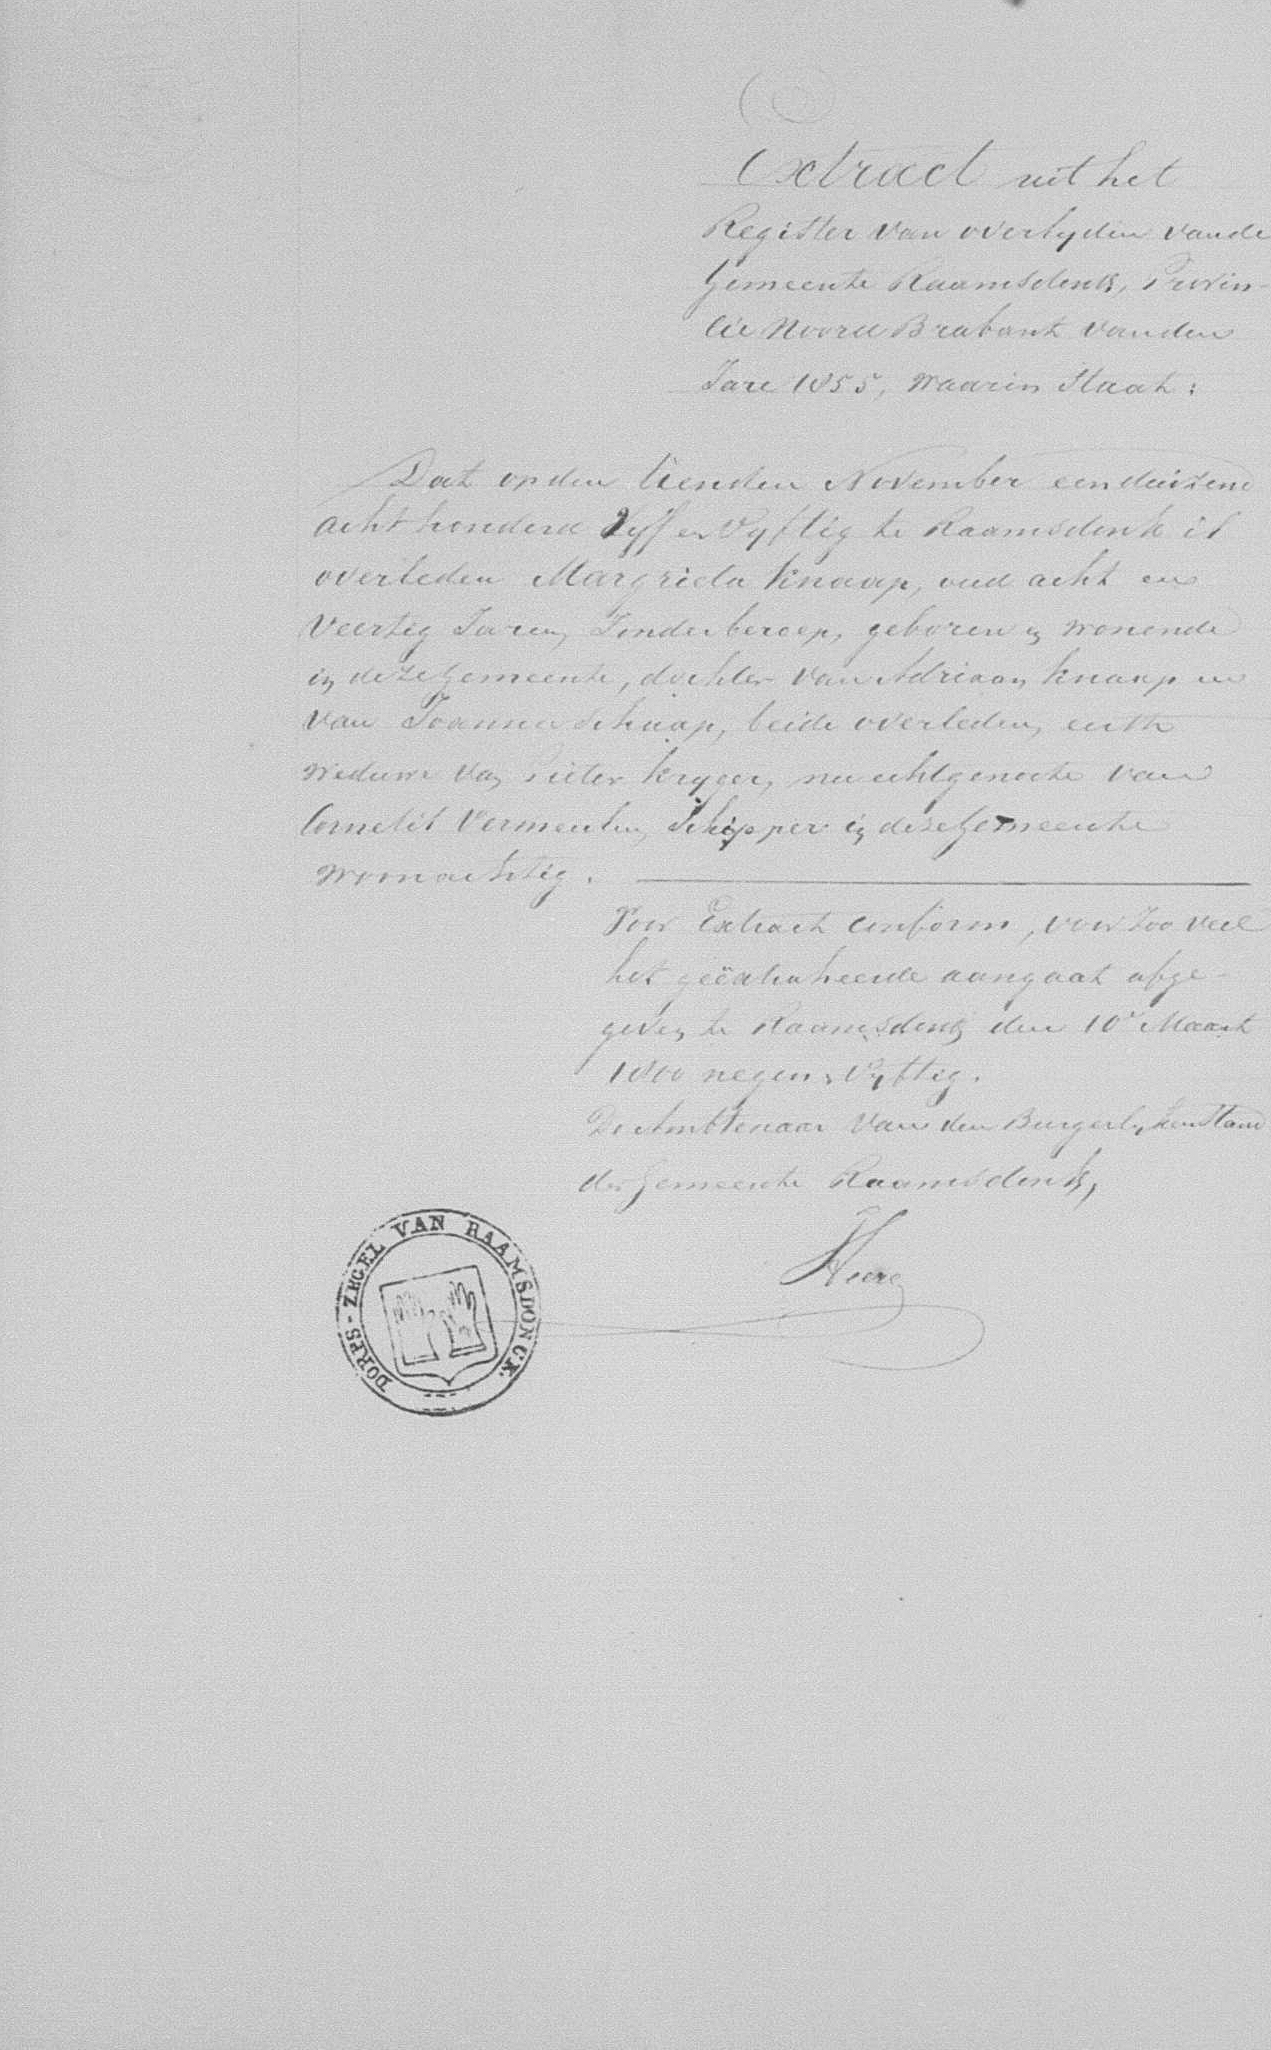 Extract uit het
Register van overlyden van de
Gemeente Raamsdonk, Provin-
cie Noord Brabant van den
Jare 1855, waarin staat:
Dat op den tienden November een duizend
acht honderd Vyf en Vyftig te Raamsdonk is
overleden Margrieta Knaap, oud acht en
Veertig Jaren, Zonder beroep, geboren en wonende
in deze Gemeente, dochter van Adriaan Knaap en
van Joanna Schaap, beide overleden, eerst
weduwe van Pieter Kryger, nu echtgenoote van
Cornelis Vermeulen, Schipper in deze Gemeente
woonachtig.
Voor Extract conform, voor zoo veel
het geëxtraheerde aangaat afge-
geven te Raamsdonk den 10e Maart
1800 negen en Vyftig.
De Ambtenaar van den Burgerlyken Stand
der Gemeente Raamsdonk,
DORPS-ZEGEL VAN RAAMSDONCK.